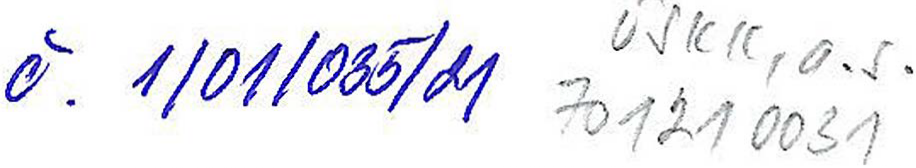 č. 1/01/035/21
ÚSKK, a.s.
701210031